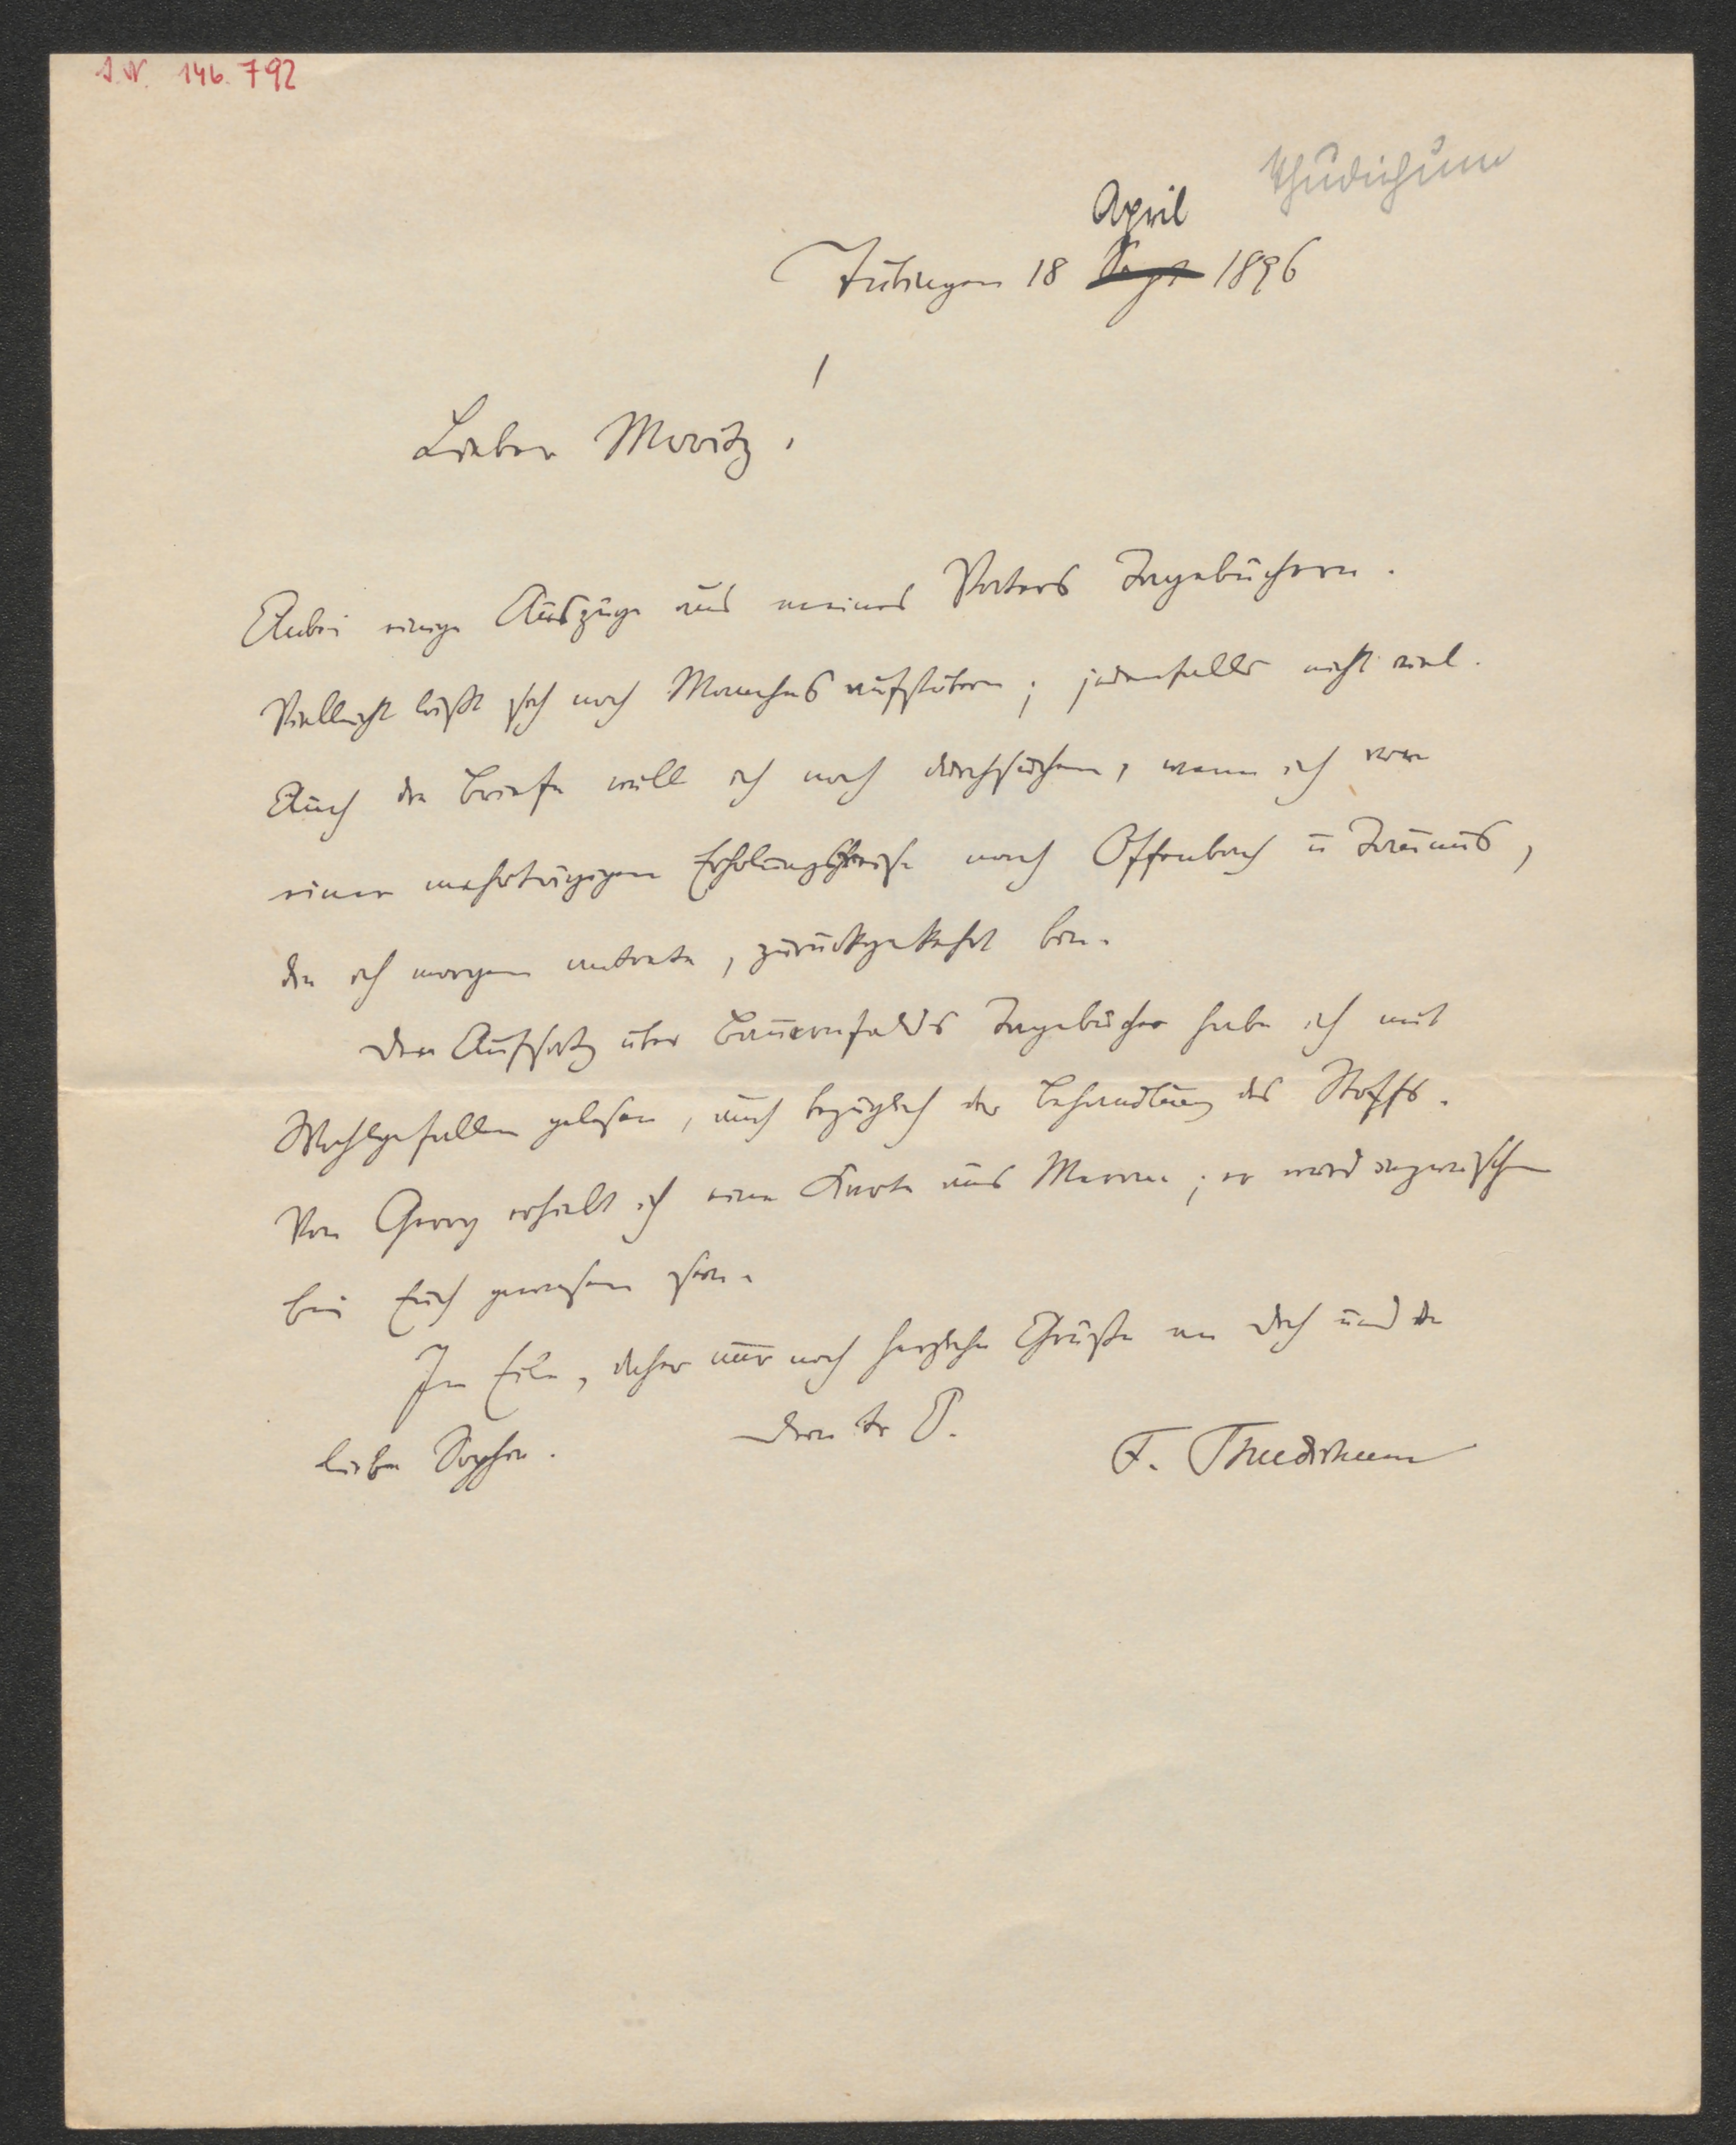 I.N. 146.792
Thudichum
April
Tübingen 18 Sept 1896
Lieber Moritz!
Anbei einige Auszüge aus meines Vaters Tagebüchern.
Vielleicht läßt sich noch Manches aufstöbern; jedenfalls nicht viel.
Auch die Briefe will ich noch durchsuchen, wenn ich von
einer mehrtägigen Erholungsreise nach Offenbach u Taunus,
die ich morgen antrete, zurückgekehrt bin.
Den Aufsatz über Bauernfelds Tagebücher habe ich mit
Wohlgefallen gelesen, auch bezüglich der Behandlung des Stoffs.
Von Georg erhielt ich eine Karte aus Meran; er wird inzwischen
bei Euch gewesen sein.
In Eile, daher nur noch herzliche Grüße an Dich und die
liebe Sophie.
Dein tr
F. Thudichum